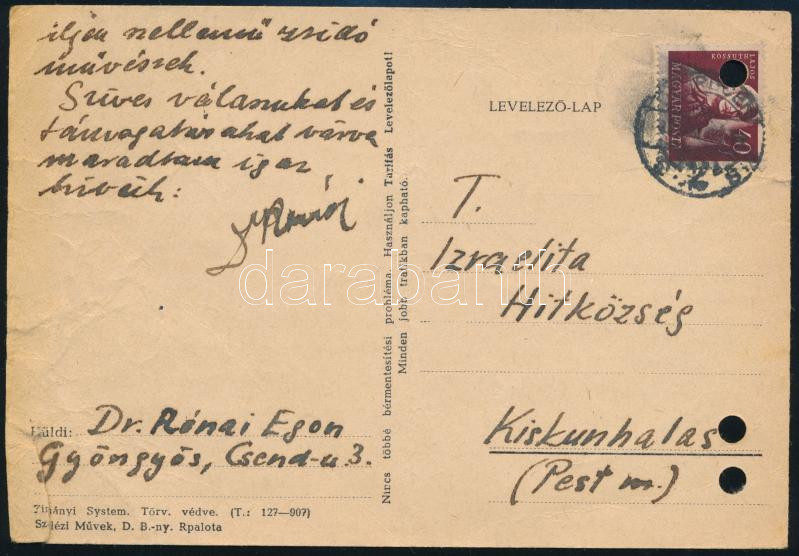 ilyen szellemű zsidó
művészek.
Szíves válaszukat és
támogatásukat várva
maradtam igaz
hívük:
Küldi: Dr. Rónai Egon
Gyöngyös, Csend-u 3.
Zimányi System. Törv. védve. (T.: 127—907)
Művek, D. B.-ny. Rpalota
Nincs többé bérmentesítési probléma. Használjon Tarifás Levelezőlapot!
Minden jobb trafikban kapható.
LEVELEZŐ-LAP
KOSSUTH LAJOS
MAGYAR POSTA
40
T.
Izraelita
Hitközség
Kiskunhalas
(Pest m.)
darabanth